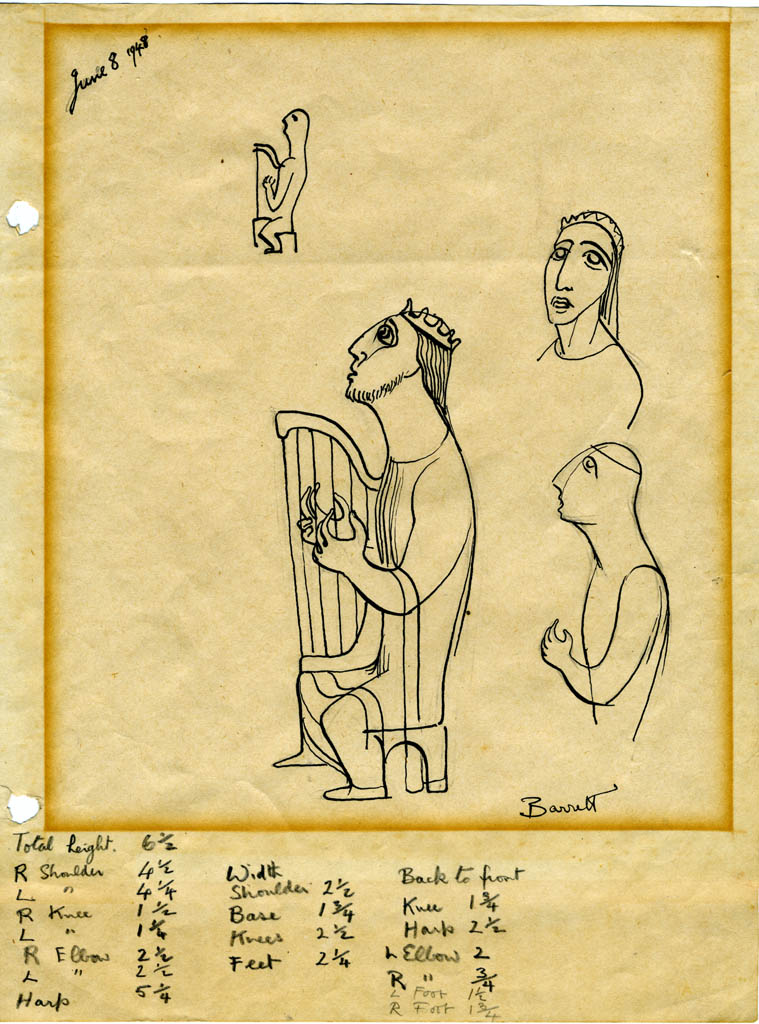 June 8 1948
Barrett
Total height. 6 1/2
R Shoulder 4 1/2
L " 4 1/4
R Knee 1 1/2
L " 1 3/4
R Elbow 2 1/2
L " 2 1/2
Harp 5 1/4
Width
Shoulder 2 1/2
Base 1 3/4
Knees 2 1/2
Feet 2 1/4
Back to front
Knee 1 3/4
Harp 2 1/2
L Elbow 2
R " 3/4
L Foot 1 1/2
R Foot 1 3/4